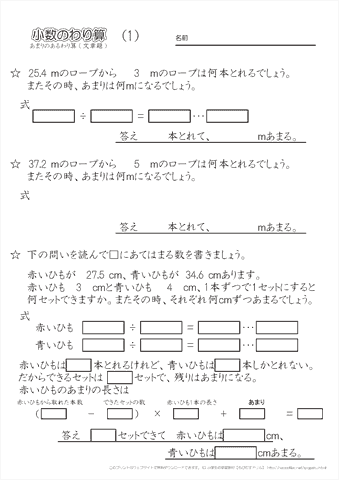 小数のわり算 (1) 名前
あまりのあるわり算(文章題)
☆ 25.4 mのロープから 3 mのロープは何本とれるでしょう。
またその時、あまりは何mになるでしょう。
式
÷ = …
答え 本とれて、 mあまる。
☆ 37.2 mのロープから 5 mのロープは何本とれるでしょう。
またその時、あまりは何mになるでしょう。
式
答え 本とれて、 mあまる。
☆ 下の問いを読んで□にあてはまる数を書きましょう。
赤いひもが 27.5 cm、青いひもが 34.6 cmあります。
赤いひも 3 cmと青いひも 4 cm、1本ずつで1セットにすると
何セットできますか。またその時、それぞれ何cmずつあまるでしょう。
式
赤いひも ÷ = …
青いひも ÷ = …
赤いひもは 本とれるけれど、青いひもは 本しかとれない。
だからできるセットは セットで、残りはあまりになる。
赤いひものあまりの長さは
赤いひもから取れた本数 できたセットの数 赤いひも1本の長さ あまり
( − ) × + =
答え セットできて 赤いひもは cm、
青いひもは cmあまる。